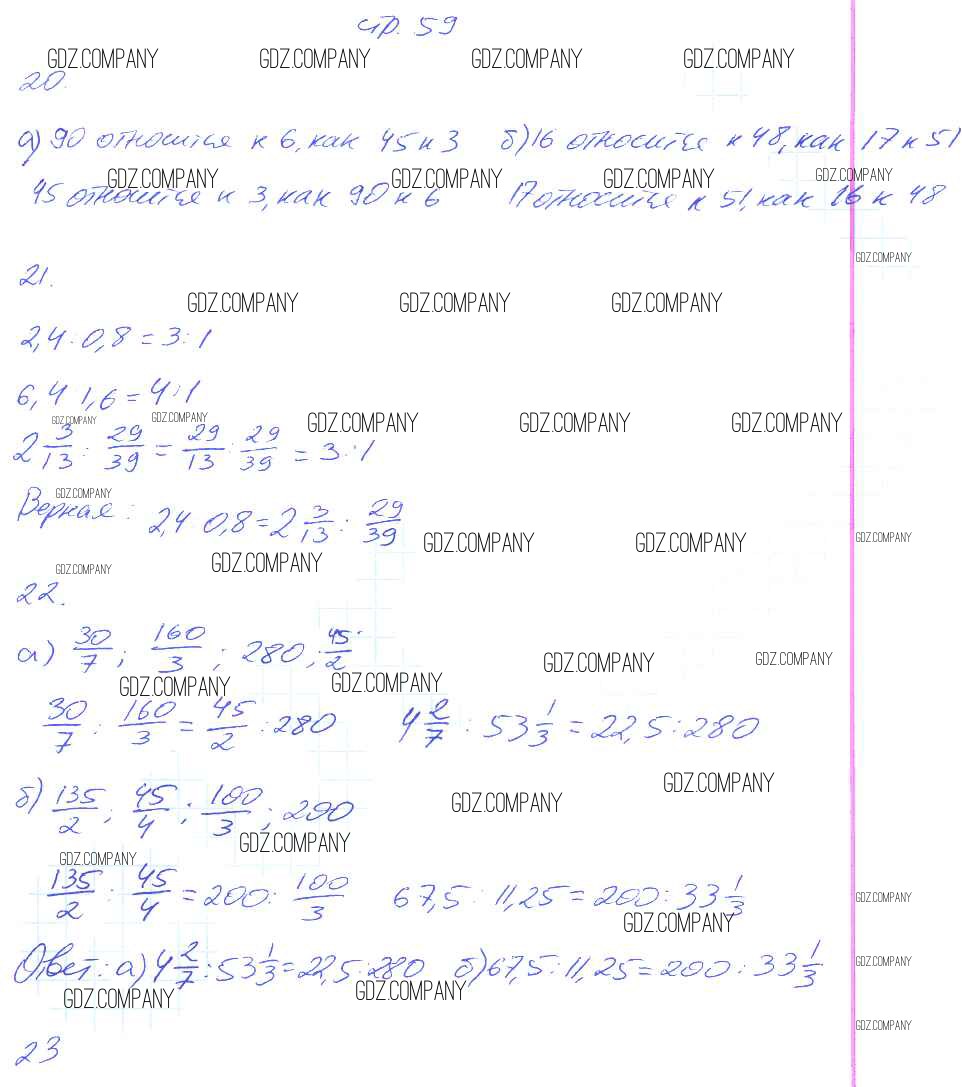 стр. 59
GDZ.COMPANY GDZ.COMPANY GDZ.COMPANY GDZ.COMPANY
20.
а) 90 относится к 6, как 45 к 3 б) 16 относится к 48, как 17 к 51
GDZ.COMPANY GDZ.COMPANY GDZ.COMPANY GDZ.COMPANY
45 относится к 3, как 90 к 6 17 относится к 51, как 16 к 48
GDZ.COMPANY
21.
GDZ.COMPANY GDZ.COMPANY GDZ.COMPANY
2,4 : 0,8 = 3 : 1
6,4 : 1,6 = 4 : 1
GDZ.COMPANY GDZ.COMPANY GDZ.COMPANY GDZ.COMPANY GDZ.COMPANY
2 3/13 : 29/39 = 29/13 : 29/39 = 3 : 1
GDZ.COMPANY
Верная: 2,4 0,8 = 2 3/13 : 29/39
GDZ.COMPANY GDZ.COMPANY GDZ.COMPANY
GDZ.COMPANY GDZ.COMPANY
22.
а) 30/7 ; 160/3 ; 280 ; 45/2
GDZ.COMPANY GDZ.COMPANY
GDZ.COMPANY GDZ.COMPANY
30/7 : 160/3 = 45/2 : 280 4 2/7 : 53 1/3 = 22,5 : 280
GDZ.COMPANY
б) 135/2 ; 45/4 ; 100/3 ; 200
GDZ.COMPANY
GDZ.COMPANY
GDZ.COMPANY
135/2 : 45/4 = 200 : 100/3 67,5 : 11,25 = 200 : 33 1/3
GDZ.COMPANY
GDZ.COMPANY
Ответ: а) 4 2/7 : 53 1/3 = 22,5 : 280 б) 67,5 : 11,25 = 200 : 33 1/3
GDZ.COMPANY
GDZ.COMPANY GDZ.COMPANY
GDZ.COMPANY
23